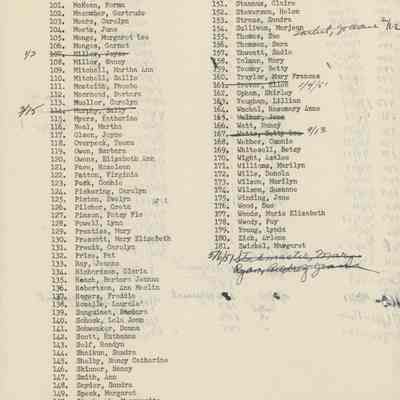 101. McKeen, Norma
102. Mecomber, Gertrude
103. Meers, Carolyn
104. Meets, June
105. Menge, Margaret Lee
106. Menges, Garnet
1/2 107. Miller, Joyce
108. Miller, Nancy
109. Mitchell, Martha Ann
110. Mitchell, Sallie
111. Monteith, Phoebe
112. Moorhead, Barbara
113. Mueller, Carolyn
2/15 114. Murphy, Sally
115. Myers, Katherine
116. Neal, Martha
117. Olson, Joyce
118. Overpeck, Teena
119. Owen, Barbara
120. Owens, Elizabeth Ann
121. Pace, Rozaleen
122. Patton, Virginia
123. Peck, Connie
124. Pickering, Carolyn
125. Pinion, Evelyn
126. Pilcher, Greta
127. Pinson, Patsy Flo
128. Powell, Lynn
129. Prentiss, Mary
130. Prescott, Mary Elizabeth
131. Prouty, Carolyn
132. Price, Pat
133. Ray, Jeanne
134. Richardson, Gloria
135. Roach, Barbara Jeanne
136. Robertson, Ann Moslin
137. Rogers, Freddie
138. Romajle, Laurele
139. Sanguinet, Barbara
140. Schock, Lola Joan
141. Schwenker, Donna
142. Scott, Ruthanna
143. Self, Rondyn
144. Shaikun, Sandra
145. Shelby, Nancy Catherine
146. Skinner, Nancy
147. Smith, Ann
148. Snyder, Sandra
149. Speck, Margaret
151. Stannus, Claire
152. Stevenson, Helen
153. Straus, Sandra
154. Sullivan, Marjean
155. Thomas, Sue
156. Thomson, Sara
157. Thweatt, Sadie
158. Tolman, Mary
159. Toomey, Betty
160. Traylor, Mary Frances
161. Trevor, Elise 1/4/51
162. Upham, Shirley
163. Vaughan, Lillian
164. Wachal, Rosemary Anne
165. Walker, Jane
166. Watt, Nancy
167. Watts, Betty Lou 9/13
168. Webber, Connie
169. Whitesell, Betsy
170. Wight, Astlee
171. Williams, Marilyn
172. Wills, Donola
173. Wilson, Marilyn
174. Wilson, Suzanne
175. Winding, Jane
176. Wood, Sue
177. Woods, Marie Elizabeth
178. Woody, Fay
179. Young, Lynda
180. Zick, Arlene
181. Zwickel, Margaret